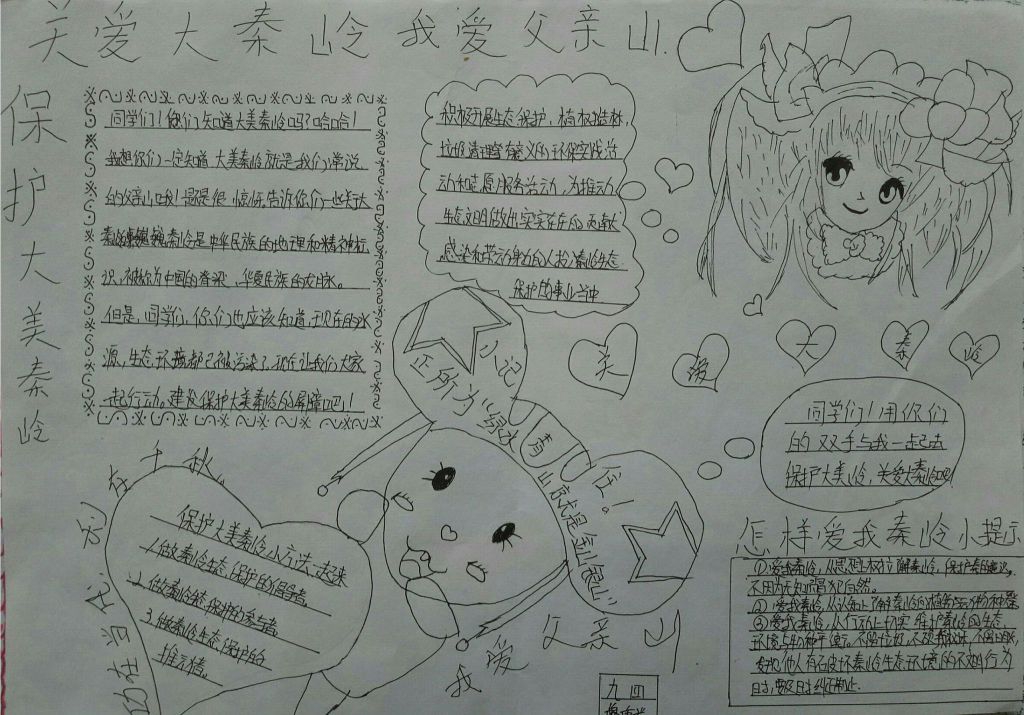 关爱大秦岭 我爱父亲山.
保护大美秦岭
同学们！你们知道大美秦岭吗？哈哈！
我想你们一定知道大美秦岭就是我们常说
的父亲山哦！是不是很惊讶,告诉你们一些关于大
秦岭 秦岭是中华民族的地理和精神标
识，被称为中国的脊梁、华夏民族的龙脉。
但是,同学们,你们也应该知道,现在的水
源,生态环境都已被污染了,现在让我们大家
一起行动,建设保护大美秦岭的屏障吧！
积极开展生态保护，植树造林,
垃圾清理等有意义的环保实践活
动和志愿服务活动，为推动
生态文明做出实实在在的贡献
感染和带动身边的人投入秦岭生态
保护的事业当中
关爱大秦岭
同学们！用你们
的双手与我一起去
保护大美秦岭,关爱大秦岭吧！
正所为“绿水青山就是金山银山”
记住！
我爱父亲山
功在当代 利在千秋
保护大美秦岭小方法一起来
1.做秦岭生态保护的倡导者
2.做秦岭生态保护的参与者
3.做秦岭生态保护的
推动者.
怎样爱我秦岭小提示
①爱我秦岭，从思想上树立了解秦岭，保护秦岭意识。
不因为无知而冒犯自然。
②爱我秦岭,从认知上了解秦岭的植物与动物种类
③爱我秦岭，从行动上切实维护秦岭的生态
发现他人有破坏秦岭生态环境的不文明行为
时,要及时纠正制止.
九四